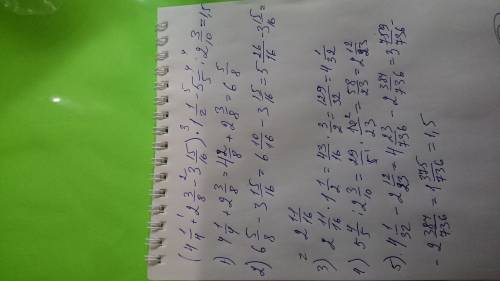 1 2 3 5 4
(4 1/4 + 2 3/8 - 3 15/16) · 1 1/2 - 5 4/5 : 2 3/10 = 1,5
1) 4 1/4 + 2 3/8 = 4 2/8 + 2 3/8 = 6 5/8
2) 6 5/8 - 3 15/16 = 6 10/16 - 3 15/16 = 5 26/16 - 3 15/16 =
= 2 11/16
3) 2 11/16 · 1 1/2 = 43/16 · 3/2 = 129/32 = 4 1/32
4) 5 4/5 : 2 3/10 = 29/5 · 10²/23 = 58/23 = 2 12/23
5) 4 1/32 - 2 12/23 = 4 23/736 - 2 384/736 = 3 759/736 -
- 2 384/736 = 1 375/736 = 1,5